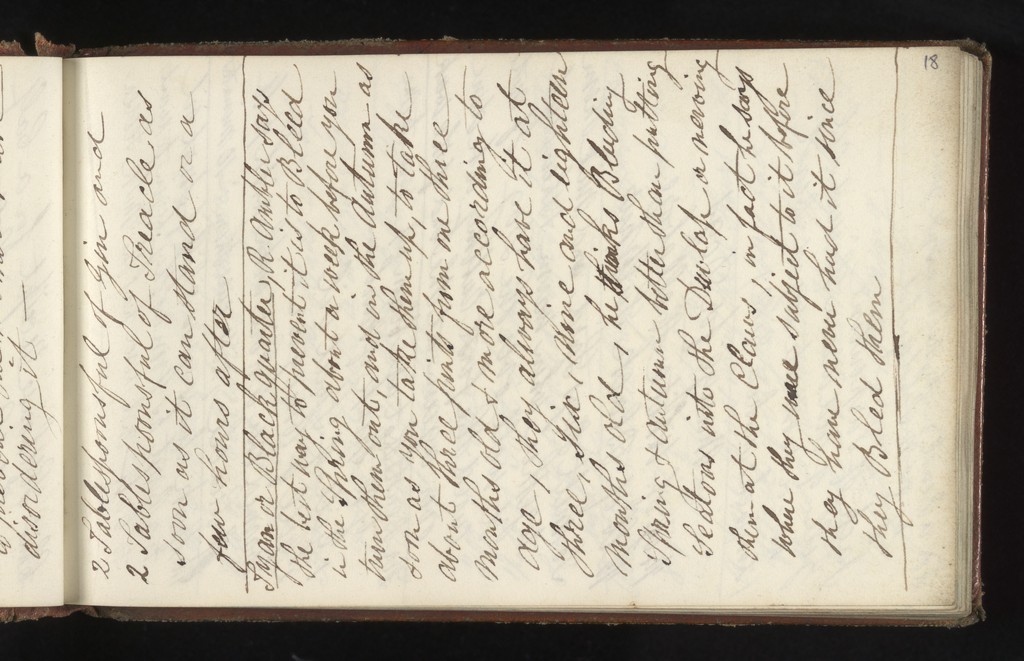 disordering it —
18
2 Tablespoonsful of Gin and
2 Tablespoonsful of Treacle as
soon as it can stand or a
few hours after
or Blackquarter, R. Anplie says
the best way to prevent it is to Bleed
in the Spring about a week before you
turn them out, and in the Autumn as
soon as you take them up, to take
about three pints from one three
months old & more according to
age, they always have it at
three, six, nine and eighteen
months old, he thinks Bleeding
Spring & Autumn better than putting
Seatons into the Dewlap or nerving
them at the Claws, in fact he says
where they were subject to it before
they have never had it since
they Bled them